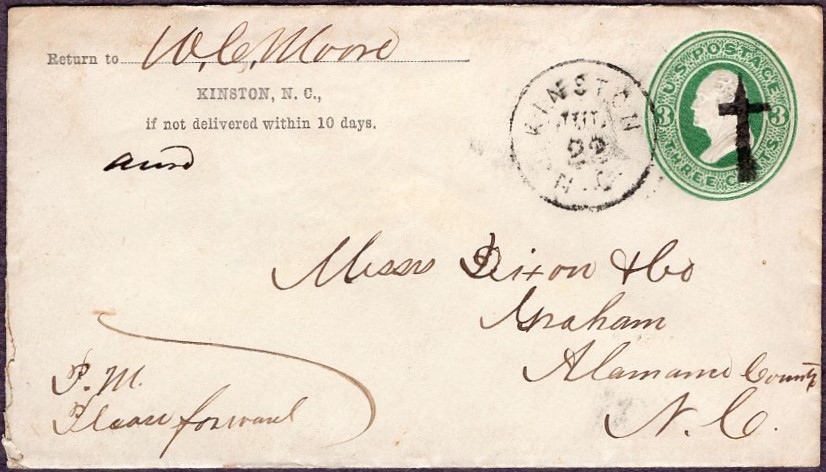 Return to W. C. Moore
KINSTON, N. C.,
if not delivered within 10 days.
KINSTON
JUL
22
N.C.
U.S. POSTAGE
3 3
THREE CENTS
Messrs Dixon & Co
Graham
Alamance County
N. C.
P. M.
Please forward